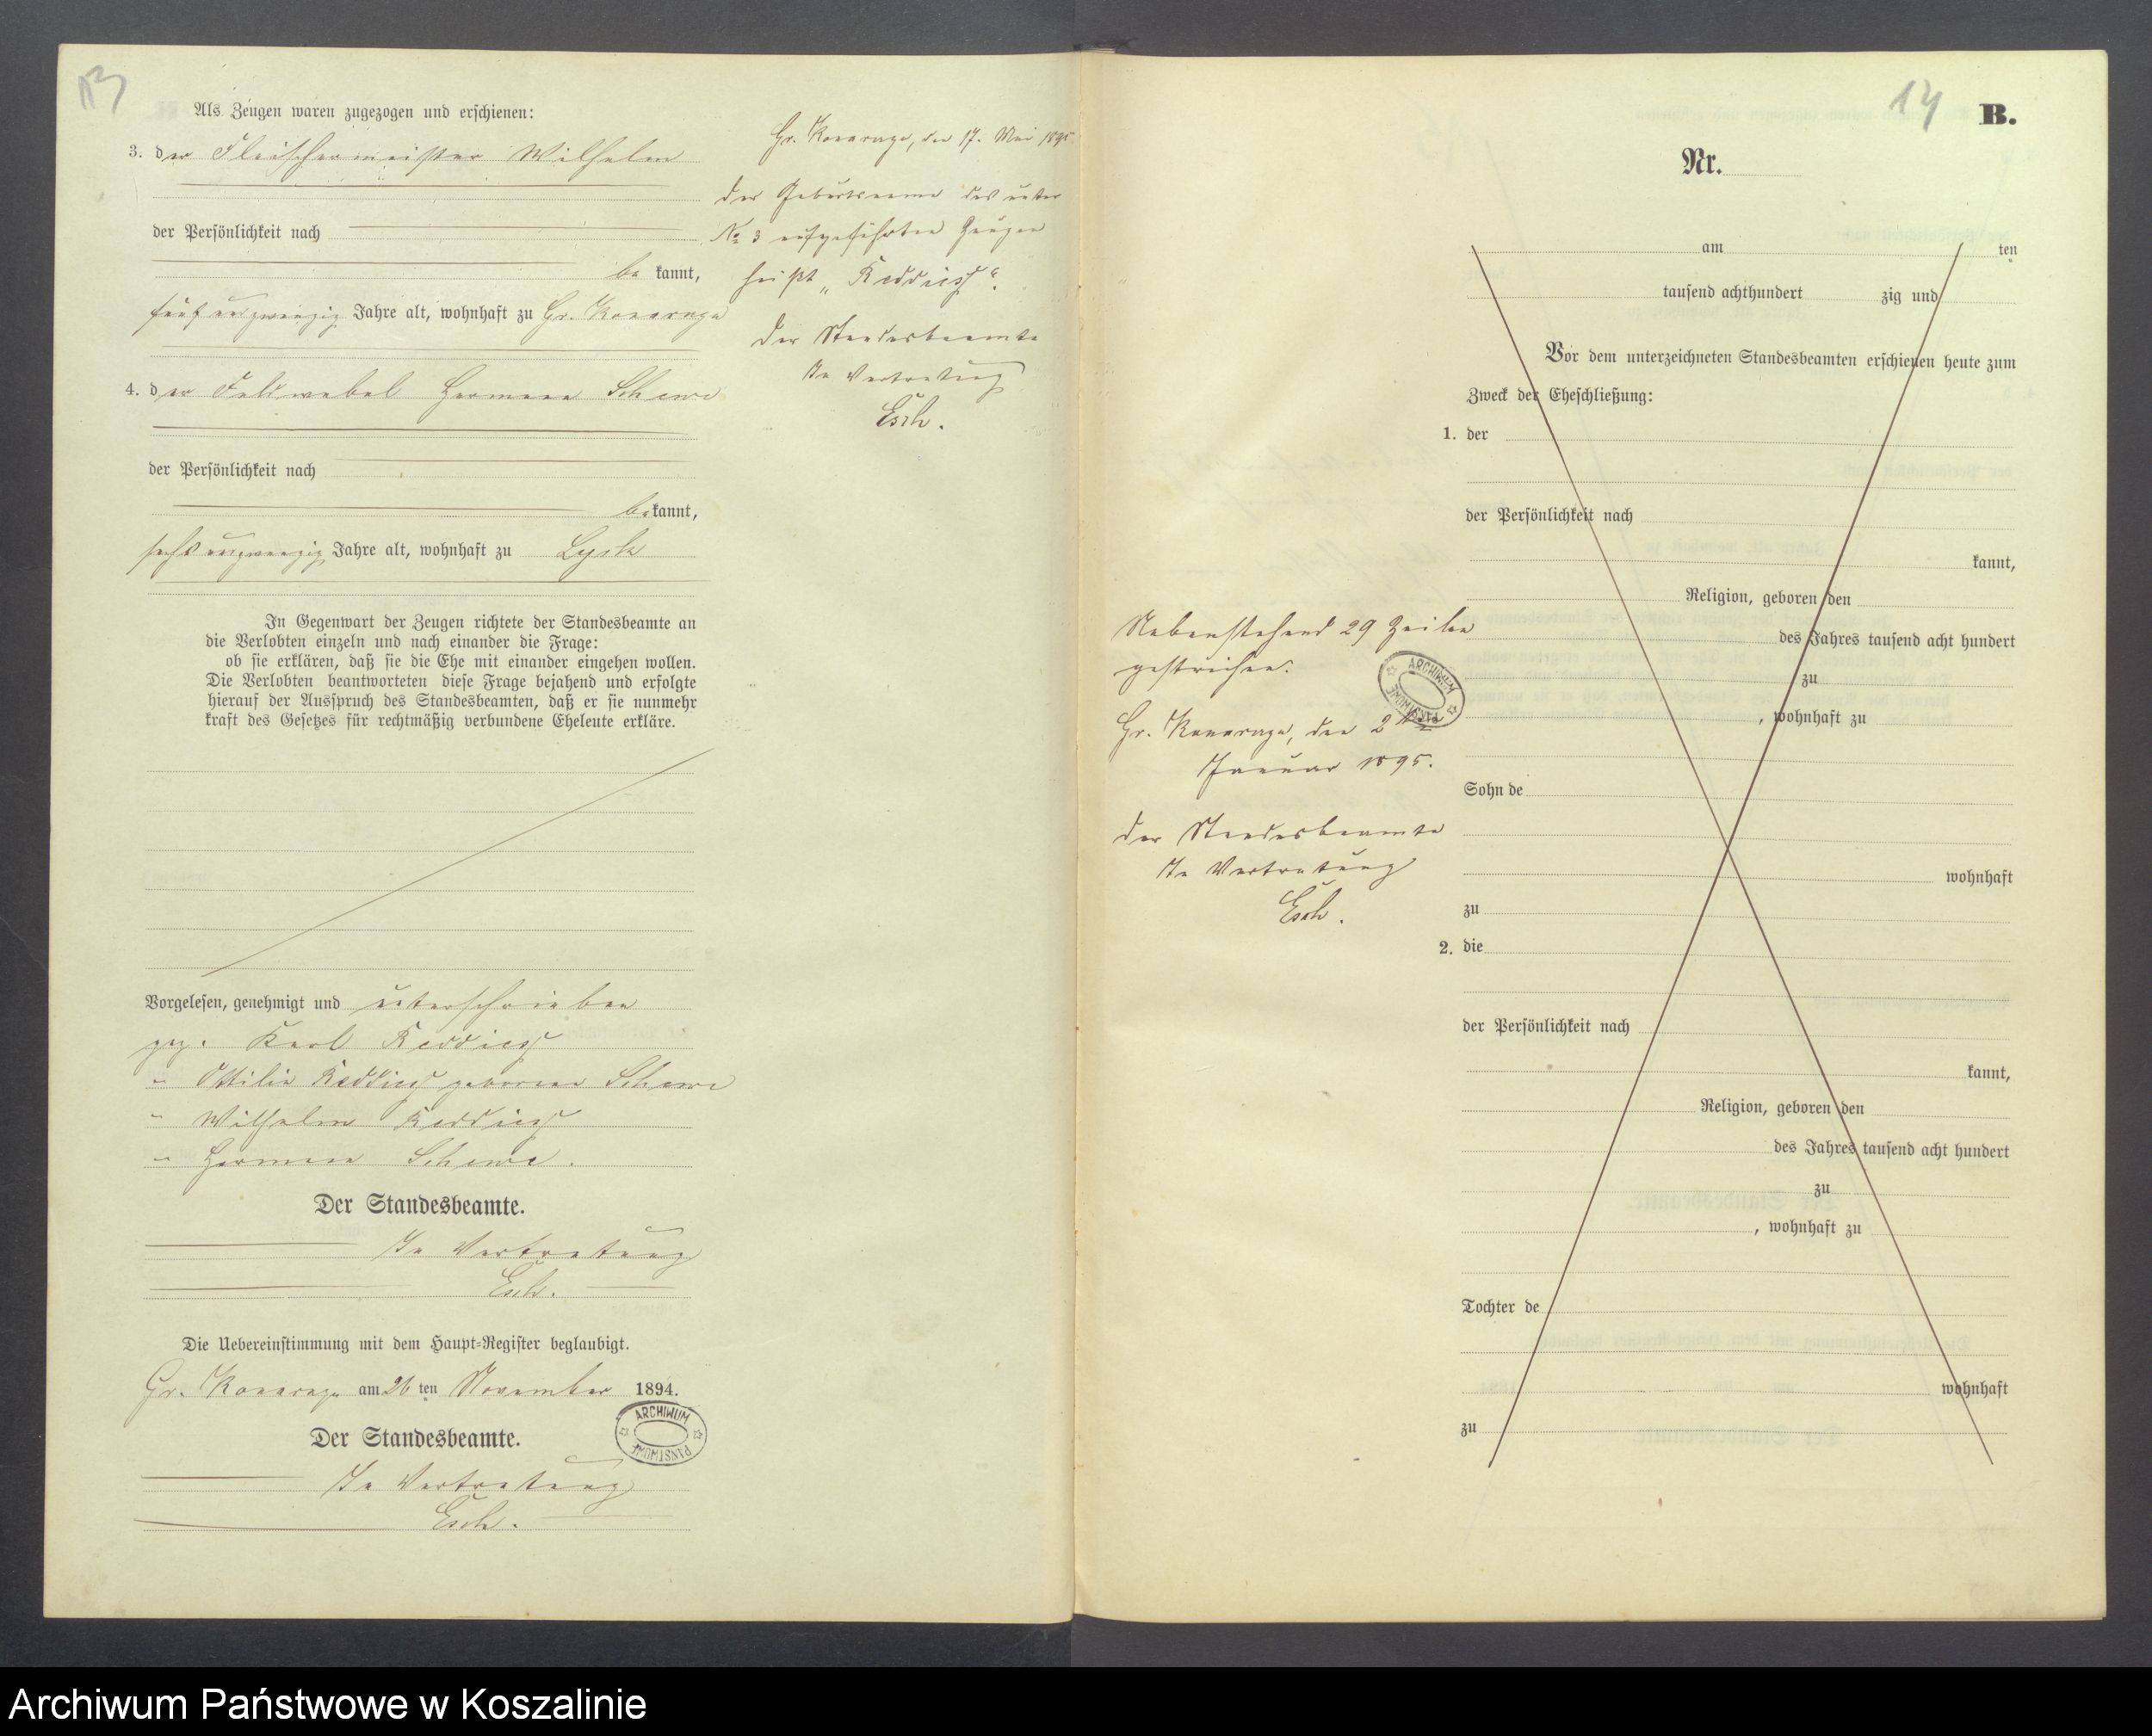 13
Als Zeugen waren zugezogen und erschienen:
3. der Fleischermeister Wilhelm
der Persönlichkeit nach
be kannt,
fünf und zwanzig Jahre alt, wohnhaft zu Gr. Konarzyn
4. der Feldwebel Hermann Schewe
der Persönlichkeit nach
bekannt,
sechsundzwanzig Jahre alt, wohnhaft zu Lyck
In Gegenwart der Zeugen richtete der Standesbeamte an
die Verlobten einzeln und nach einander die Frage:
ob sie erklären, daß sie die Ehe mit einander eingehen wollen.
Die Verlobten beantworteten diese Frage bejahend und erfolgte
hierauf der Ausspruch des Standesbeamten, daß er sie nunmehr
kraft des Gesetzes für rechtmäßig verbundene Eheleute erkläre.
Vorgelesen, genehmigt und unterschrieben
gez. Karl Reddies
" Ottilie Reddies geborene Schewe
" Wilhelm Reddies
" Hermann Schewe.
Der Standesbeamte.
In Vertretung
Esch.
Die Uebereinstimmung mit dem Haupt-Register beglaubigt.
Gr. Konarzyn am 26 ten November 1894.
Der Standesbeamte.
In Vertretung
Esch.
ARCHIWUM PAŃSTWOWE
Gr. Konarzyn, den 17. Mai 1895
Der Geburtsname des unter
No 3 aufgeführten Zeugen
heißt „Reddies“.
Der Standesbeamte
In Vertretung
Esch.
14
B.
Nr.
am ten
tausend achthundert zig und
Vor dem unterzeichneten Standesbeamten erschienen heute zum
Zweck der Eheschließung:
1. der
der Persönlichkeit nach
kannt,
Religion, geboren den
des Jahres tausend acht hundert
zu
, wohnhaft zu
Sohn de
wohnhaft
zu
2. die
der Persönlichkeit nach
kannt,
Religion, geboren den
des Jahres tausend acht hundert
zu
, wohnhaft zu
Tochter de
wohnhaft
zu
Nebenstehend 29 Zeilen
gestrichen.
ARCHIWUM PAŃSTWOWE
Gr. Konarzyn, den 2ten
Januar 1895.
Der Standesbeamte
In Vertretung
Esch.
Archiwum Państwowe w Koszalinie